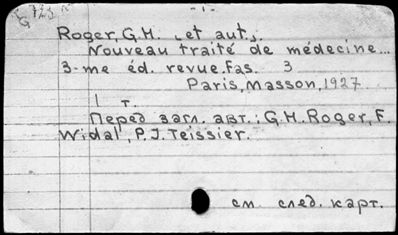 - 1 -
Roger, G.H. [et aut.].
Nouveau traité de médecine...
3-me éd. revue. Fas. 3
Paris, Masson, 1927
1 т.
Перед загл. авт.: G.H. Roger, F.
Widal, P.J. Teissier.
см. след. карт.